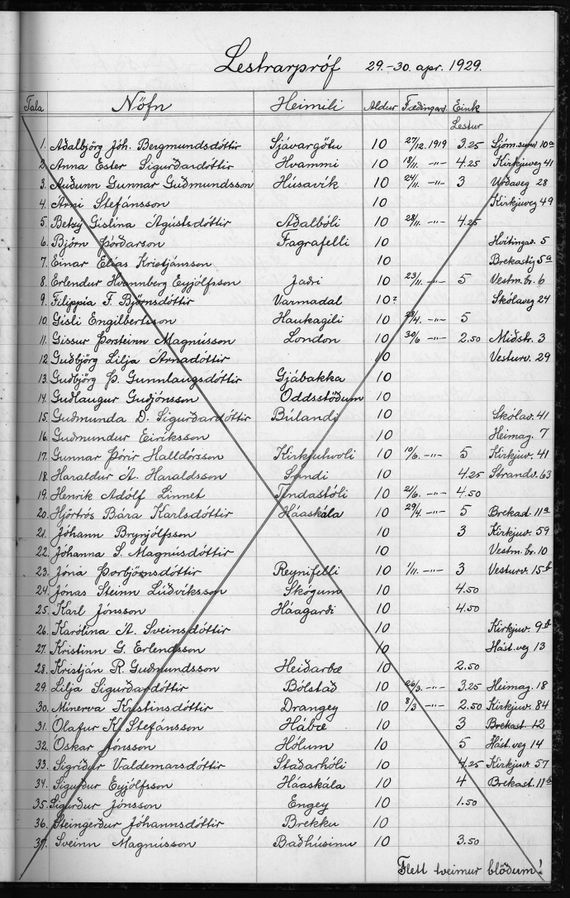 Lestrarpróf 29.-30. apr. 1929.
Tala Nöfn Heimili Aldur Fæðingard. Eink
Lestur
1. Aðalbjörg Jóh. Bergmundsdóttir Sjávargötu 10 27/12. 1919 3.25 Sjóm.sund 10a
2. Anna Ester Sigurðardóttir Hvammi 10 18/11. -"- 4.25 Kirkjuveg 41
3. Auðunn Gunnar Guðmundsson Húsavík 10 24/11. -"- 3 28
4. Árni Stefánsson 10 Kirkjuveg 49
5. Betzý Gíslína Ágústsdóttir Aðalbóli 10 28/11. -"- 4.25
6. Björn Þórðarson Fagrafelli 10 Hvítingav. 5
7. Einar Elías Kristjánsson 10 Brekastig 5a
8. Erlendur Hvannberg Eyjólfsson Jaðri 10 23/11. -"- 5 Vestm.br. 6
9. Filippía F. Björnsdóttir Varmadal 10? Skólaveg 24
10. Gísli Engilbertsson Haukagili 10 /4. -"- 5
11. Gissur Þorsteinn Magnússon London 10 30/6 -"- 2.50 Miðstr. 3
12. Guðbjörg Lilja Árnadóttir 10 Vesturv. 29
13. Guðbjörg Þ. Gunnlaugsdóttir Gjábakka 10
14. Guðlaugur Guðjónsson Oddsstöðum 10
15. Guðmunda D. Sigurðardóttir Búlandi 10 Skólav. 41
16. Guðmundur Eiríksson 10 Heimag. 7
17. Gunnar Þórir Halldórsson Kirkjuhvoli 10 10/6. -"- 5 Kirkjuv. 41
18. Haraldur Á. Haraldsson Sandi 10 4.25 Strandv. 63
19. Henrik Adólf Linnet Tindastóli 10 21/6. -"- 4.50
20. Hjörtrós Bára Karlsdóttir Háaskála 10 29/4. -"- 5 Brekast. 11a
21. Jóhann Brynjólfsson 10 3 Kirkjuv. 59
22. Jóhanna S. Magnúsdóttir 10 Vestm. br. 10
23. Jóna Þorbjörnsdóttir Reynifelli 10 1/11. -"- 3 Vesturv. 15b
24. Jónas Steinn Lúðvíksson Skógum 10 4.50
25. Karl Jónsson Háagarði 10 4.50
26. Karólína Á. Sveinsdóttir 10 Kirkjuv. 9b
27. Kristinn G. Erlendsson 10 Hást.veg 13
28. Kristján R. Guðmundsson Heiðarbæ 10 2.50
29. Lilja Sigurðardóttir Bólstað 10 26/3. -"- 3.25 Heimag. 18
30. Minerva Kristinsdóttir Drangey 10 8/3 -"- 2.50 Kirkjuv. 84
31. Ólafur K. Stefánsson Hábæ 10 3 Brekast 12
32. Óskar Jónsson Hólum 10 5 Hást.veg 14
33. Sigríður Valdemarsdóttir Staðarhóli 10 4.25 Kirkjuv. 57
34. Sigurður Eyjólfsson Háaskála 10 4 Brekast. 11b
35. Sigurður Jónsson Engey 10 1.50
36. Steingerður Jóhannsdóttir Brekku 10
37. Sveinn Magnússon Baðhúsinu 10 3.50
Flett tveimur blöðum!